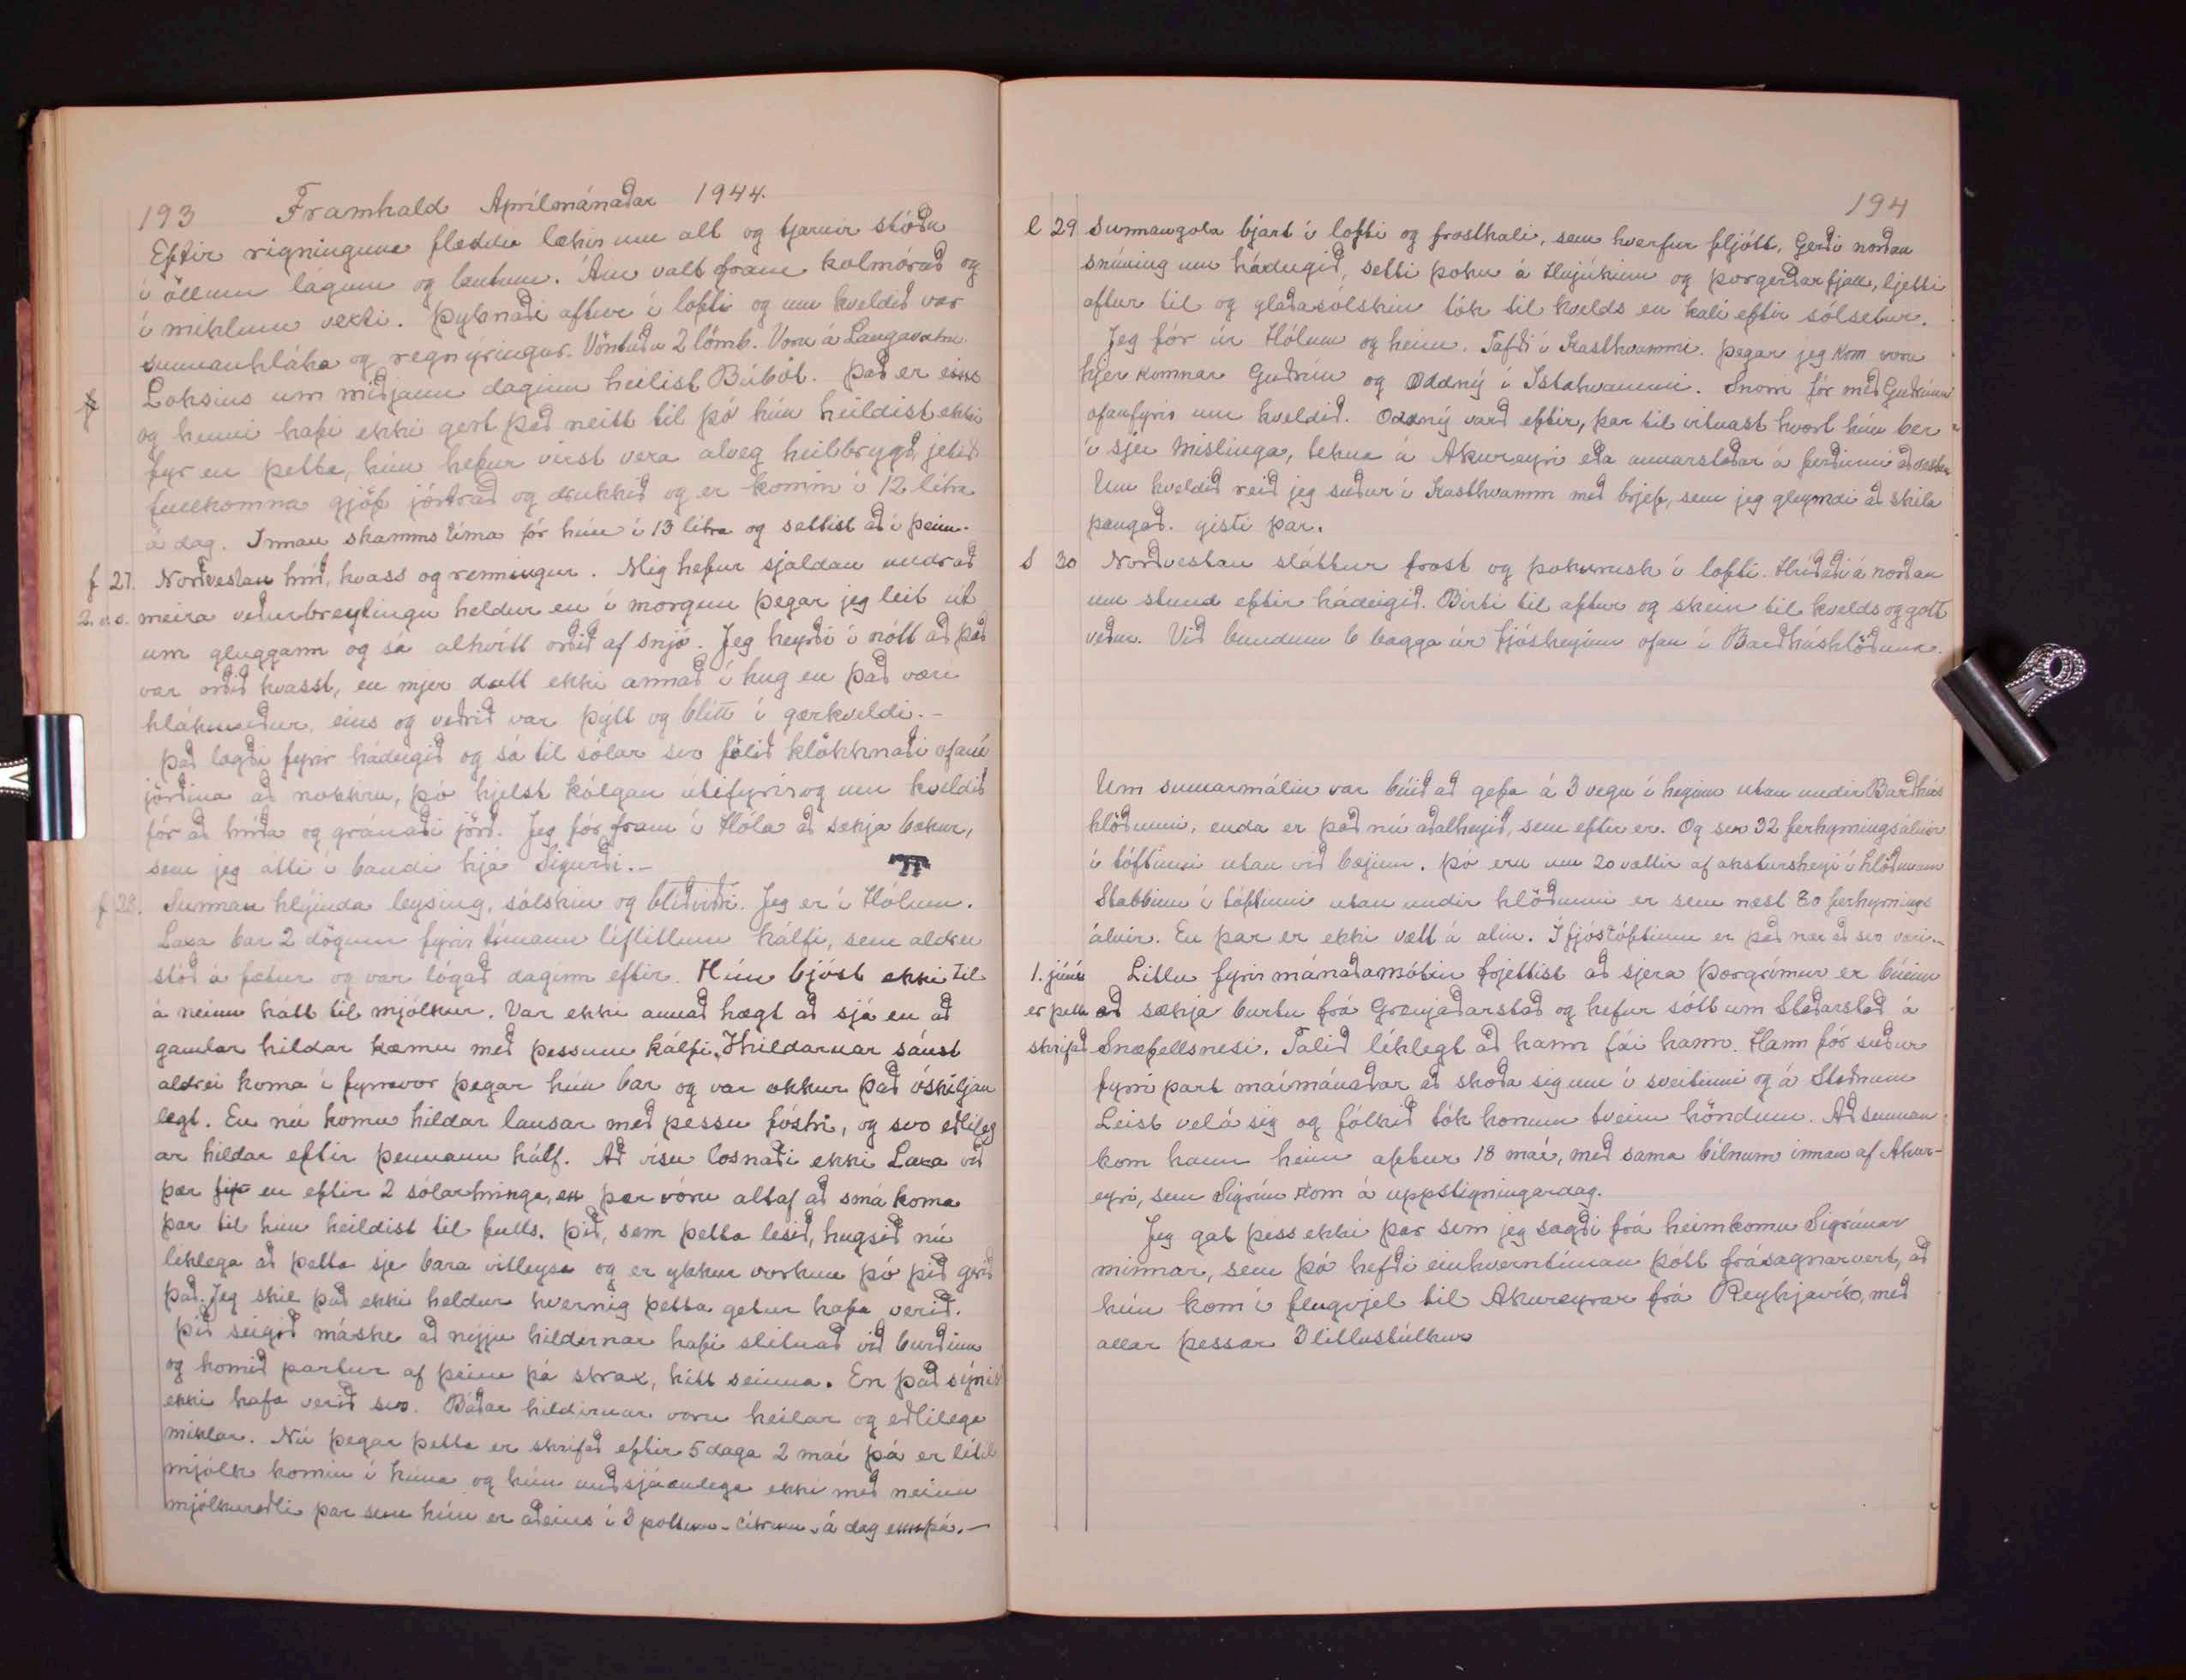 193 Framhald Aprílmánaðar 1944.
Eftir rigninguna flæddu lækir um alt og tjarnir stóðu
í öllum lágum og lautum. Áin valt fram kolmórauð og
í miklum vexti. Þyknaði aftur í lofti og um kveldið var
sunnanhláka og regnýringur. Vöntuðu 2 lömb. Voru á Langavatni.
Loksins um miðjann daginn heilist Búbót. Það er eins
og henni hafi ekki gert það neitt til þó hún heildist ekki
fyr en þetta, hún hefur virst vera alveg heilbrygð, jetið
fullkomna gjöf jórtrað og drukkið og er komin í 12 lítra
á dag. Innan skamms tíma fór hún í 13 lítra og sattist að í þeim.
f 27. Norðvestan hríð, hvass og renningur. Mig hefur sjaldan undrað
2. v.s. meira veðurbreytingu heldur en í morgun þegar jeg leit út
um gluggann og sá alhvítt orðið af snjó. Jeg heyrði í nótt að það
var orðið hvasst, en mjer datt ekki annað í hug en það væri
hlákuveður, eins og veðrið var þýtt og blítt í gærkveldi.-
Það lægði fyrir hádegið og sá til sólar svo fölið klökknaði ofaní
jörðina að nokkru, þó hjelst kólgan útifyrir og um kveldið
fór að hríða og gránaði jörð. Jeg fór fram í Hóla að sækja bækur,
sem jeg átti í bandi hjá Sigurði.-
f 28. Sunnan hlýinda leysing, sólskin og blíðviðri. Jeg er í Hólum.
Laxa bar 2 dögum fyrir tímann líflitlum kálfi, sem aldrei
stóð á fætur og var lógað daginn eftir. Hún bjóst ekki til
á neinn hátt til mjólkur. Var ekki annað hægt að sjá en að
gamlar hildar kæmu með þessum kálfi. Hildarnar sáust
aldrei koma í fyrravor þegar hún bar og var okkur það óskiljan
legt. En nú komu hildar lausar með þessu fóstri, og svo eðlileg
ar hildar eftir þennann kálf. Að vísu losnaði ekki Laxa við
þær fyr en eftir 2 sólarhringa, en þær vóru altaf að smá koma
þar til hún heildist til fulls. Þið, sem þetta lesið, hugsið nú
leklega að þetta sje bara vitleysa og er ykkur vorkun þó þið gerið
það. Jeg skil það ekki heldur hvernig þetta getur hafa verið.
Þið seigið máske að nýju hildirnar hafi slitnað við burðinn
og komið partur af þeim þá strax, hitt seinna. En það sýnist
ekki hafa verið svo. Báðar hildirnar voru heilar og eðlilega
miklar. Nú þegar þetta er skrifað eftir 5 daga 2 maí þá er lítil
mjólk komin í hana og hún auðsjáanlega ekki með neinu
mjólkureðli þar sem hún er aðeins í 3 pottum - lítrum - á dag ennþá.-
194
l 29 Sunnangola bjart í lofti og frostkali, sem hverfur fljótt. Gerði norðan
snúning um hádegið, setti þoku á Hnjúkinn og Þorgerðarfjall, ljetti
aftur til og glaðasólskin tók til kvelds en kali eftir sólsetur.
Jeg fór úr Hólum og heim. Tafði í Kasthvammi. Þegar jeg kom voru
hjer komnar Guðrún og Oddný í Ístahvammi. Snorri fór með Guðrúnu
ofanfyrir um kveldið. Oddný varð eftir, þar til vitnast hvort hún ber
í sjer mislinga, tekna á Akureyri eða annarstaðar á ferðinni að vestan
Um kveldið reið jeg suður í Kasthvamm með brjef, sem jeg gleymdi að skila
þangað. gisti þar.
S 30 Norðvestan sláttur frost og þokurusk í lofti. Hríðaði á norðan
um stund eftir hádeigið. Birti til aftur og skein til kvelds og gott
veður. Við bundum 6 bagga úr fjósheyinu ofan í Barðhúshlöðuna.
Um sumarmálin var búið að gefa á 3 vegu í heyinu utan undir Barðhús
hlöðunni, enda er það nú aðalheyið, sem eftir er. Og svo 32 ferhyrningsálnir
í tóftinni utan við bæinn. Þó eru um 20 vættir af akstursheyi í hlöðunum
Stabbinn í tóftinni utan undir hlöðunni er sem næst 80 ferhyrnings
álnir. En þar er ekki vætt á alin. Í fjóstóftinni er það nær að svo væri.-
1. júní Litlu fyrir mánaðamótin frjettist að sjera Þorgrímur er búinn
er þetta að sækja burtu frá Grenjaðarstað og hefur sótt um Staðarstað á
skrifað Snæfellsnesi. Talið líklegt að hann fái hann. Hann fór suður
fyrri part maímánaðar að skoða sig um í sveitinni og á Staðnum
Leist vel á sig og fólkið tók honum tveim höndum. Að sunnan
kom hann heim aftur 18 maí, með sama bílnum innan af Akur-
eyri, sem Sigrún kom á uppstigningardag.
Jeg gat þess ekki þar sem jeg sagði frá heimkomu Sigrúnar
minnar, sem þó hefði einhverntíman þótt frásagnarvert, að
hún kom í flugvjel til Akureyrar frá Reykjavík, með
allar þessar 3 litlustúlkur